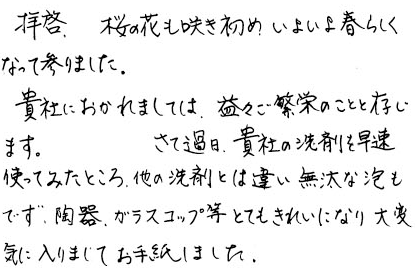 拝啓、 桜の花も咲き初め いよいよ春らしく
なって参りました。
貴社におかれましては、益々ご繁栄のことと存じ
ます。 さて過日、貴社の洗剤を早速
使ってみたところ、他の洗剤とは違い 無汰な泡も
でず、陶器、ガラスコップ等 とてもきれいになり 大変
気に入りまして お手紙しました。